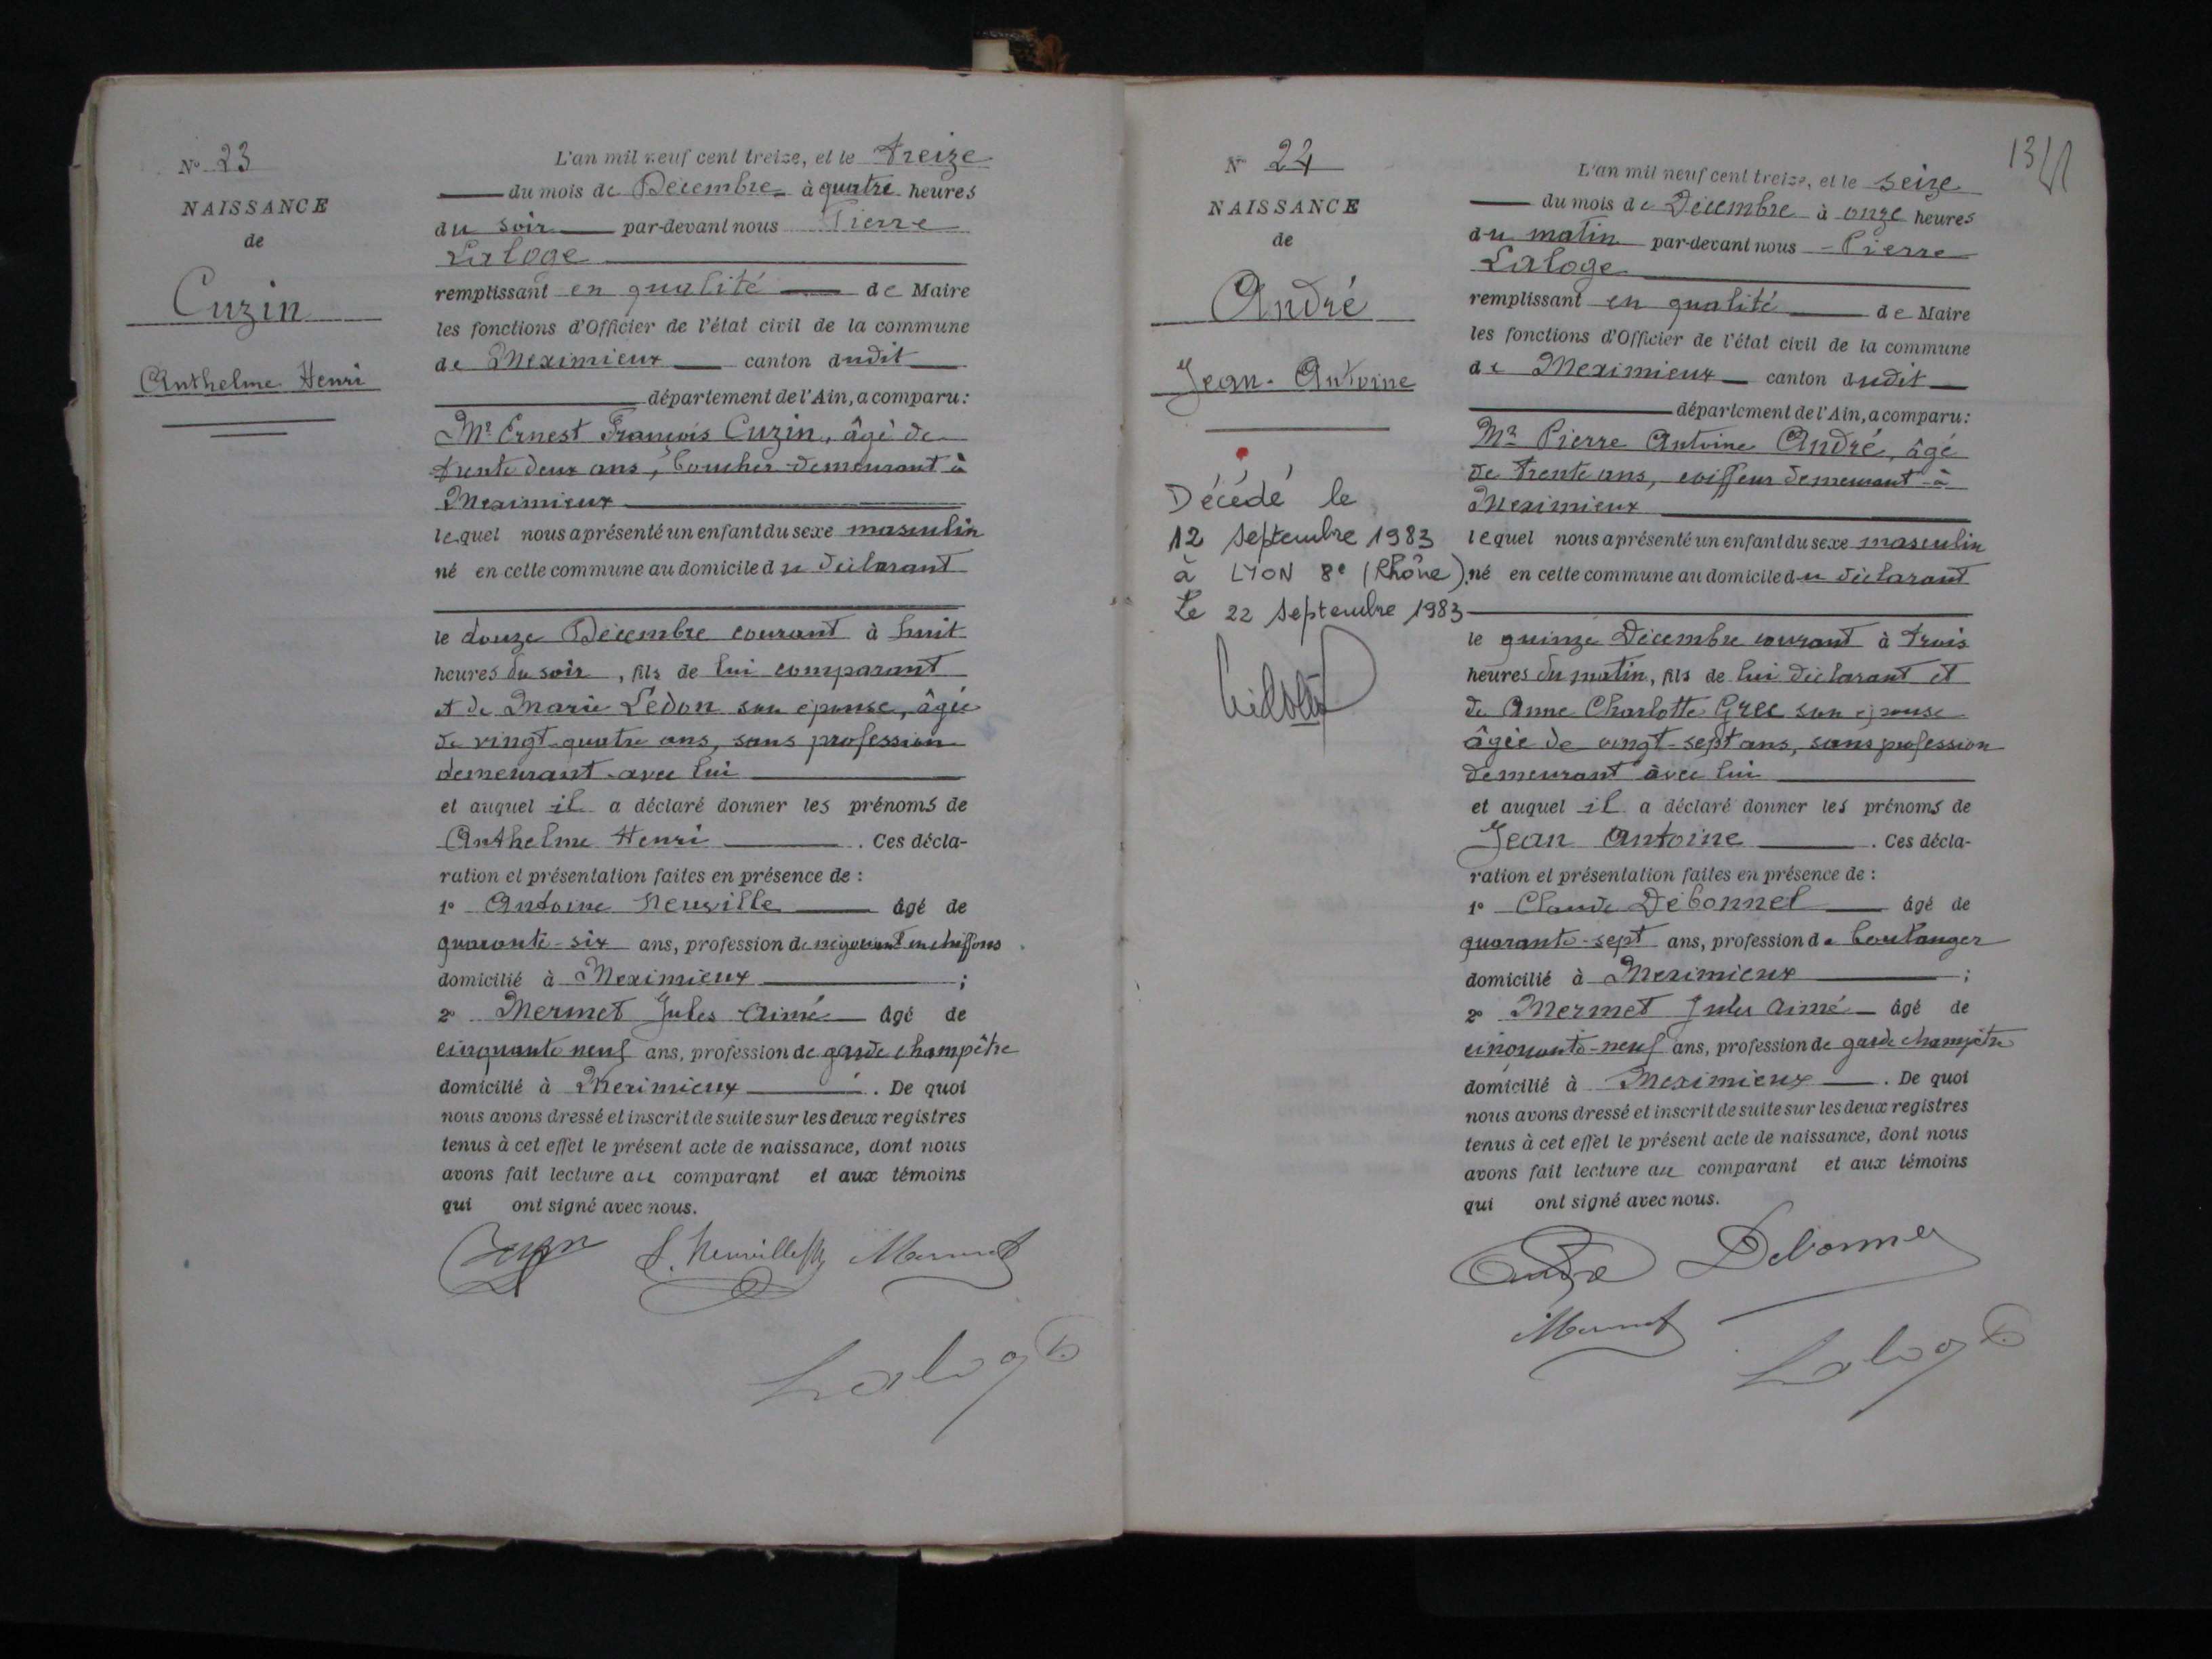 N° 23
NAISSANCE
de
Cuzin
Anthelme Henri
L'an mil neuf cent treize, et le treize
du mois de Décembre à quatre heures
du soir par-devant nous Pierre
Laloge
remplissant en qualité de Maire
les fonctions d'Officier de l'état civil de la commune
de Meximieux canton dudit
département de l'Ain, a comparu :
Mr Ernest François Cuzin, âgé de
trente deux ans, boucher demeurant à
Meximieux
lequel nous a présenté un enfant du sexe masculin
né en cette commune au domicile du déclarant
le douze Décembre courant à huit
heures du soir, fils de lui comparant
et de Marie Lédon son épouse, âgée
de vingt-quatre ans, sans profession
demeurant avec lui
et auquel il a déclaré donner les prénoms de
Anthelme Henri. Ces décla-
ration et présentation faites en présence de :
1° Antoine Neuville âgé de
quarante-six ans, profession de négociant en chiffons
domicilié à Meximieux ;
2° Mermet Jules Aimé âgé de
cinquante neuf ans, profession de garde champêtre
domicilié à Meximieux. De quoi
nous avons dressé et inscrit de suite sur les deux registres
tenus à cet effet le présent acte de naissance, dont nous
avons fait lecture au comparant et aux témoins
qui ont signé avec nous.
Cuzin Neuville Mermet
Laloge
13
N° 24
NAISSANCE
de
André
Jean-Antoine
Décédé le
12 septembre 1983
à LYON 8e (Rhône).
Le 22 septembre 1983
L'an mil neuf cent treize, et le seize
du mois de Décembre à onze heures
du matin par-devant nous Pierre
Laloge
remplissant en qualité de Maire
les fonctions d'Officier de l'état civil de la commune
de Meximieux canton dudit
département de l'Ain, a comparu :
Mr Pierre Antoine André, âgé
de trente ans, coiffeur demeurant à
Meximieux
lequel nous a présenté un enfant du sexe masculin
né en cette commune au domicile du déclarant
le quinze Décembre courant à trois
heures du matin, fils de lui déclarant et
de Anne Charlotte Grec son épouse
âgée de vingt-sept ans, sans profession
demeurant avec lui
et auquel il a déclaré donner les prénoms de
Jean Antoine. Ces décla-
ration et présentation faites en présence de :
1° Claude Débonnel âgé de
quarante-sept ans, profession de boulanger
domicilié à Meximieux ;
2° Mermet Jules Aimé âgé de
cinquante-neuf ans, profession de garde champêtre
domicilié à Meximieux. De quoi
nous avons dressé et inscrit de suite sur les deux registres
tenus à cet effet le présent acte de naissance, dont nous
avons fait lecture au comparant et aux témoins
qui ont signé avec nous.
André Debonnel
Mermet Laloge